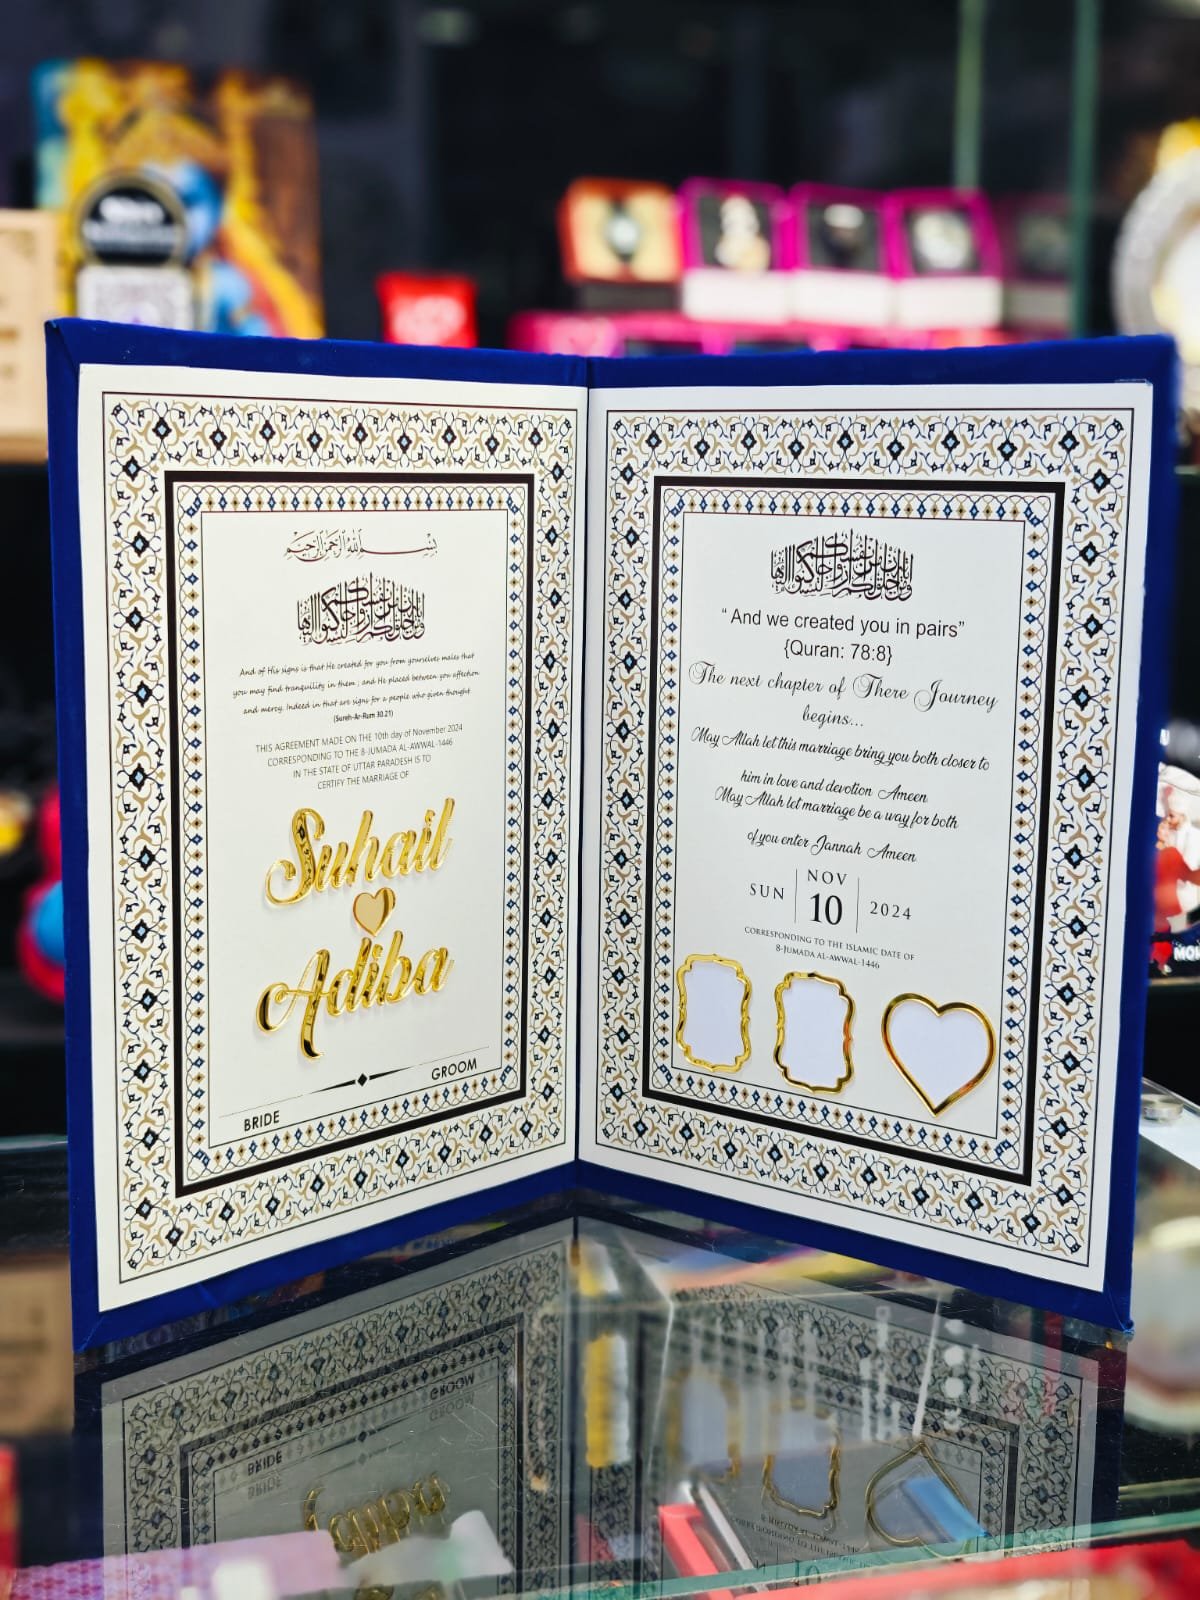 بسم الله الرحمن الرحيم
And of His signs is that He created for you from yourselves mates that
you may find tranquility in them ; and He placed between you affection
and mercy. Indeed in that are signs for a people who given thought
(Sureh-Ar-Rum 30:21)
THIS AGREEMENT MADE ON THE 10th day of November 2024
CORRESPONDING TO THE 8-JUMADA AL-AWWAL-1446
IN THE STATE OF UTTAR PARADESH IS TO
CERTIFY THE MARRIAGE OF
Suhail
Adiba
BRIDE
GROOM
“ And we created you in pairs”
{Quran: 78:8}
The next chapter of There Journey
begins...
May Allah let this marriage bring you both closer to
him in love and devotion Ameen
May Allah let marriage be a way for both
of you enter Jannah Ameen
SUN
NOV
10
2024
CORRESPONDING TO THE ISLAMIC DATE OF
8-JUMADA AL-AWWAL-1446